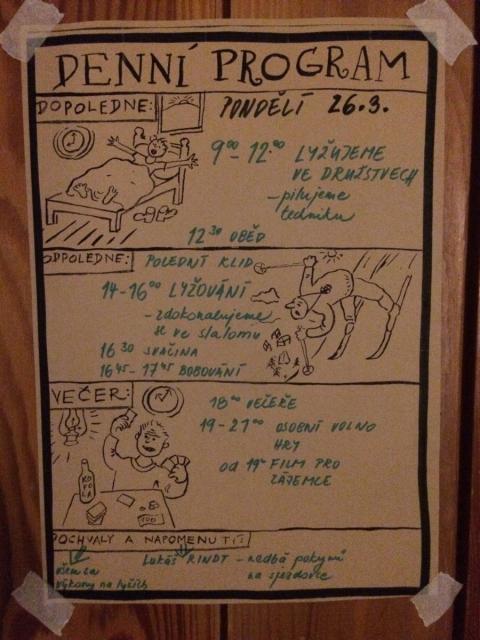 DENNÍ PROGRAM
DOPOLEDNE:
PONDĚLÍ 26.3.
9⁰⁰ - 12⁰⁰ LYŽUJEME
VE DRUŽSTVECH
- pilujeme
techniku
12³⁰ OBĚD
ODPOLEDNE:
POLEDNÍ KLID
14-16⁰⁰ LYŽOVÁNÍ
- zdokonalujeme
se ve slalomu
16³⁰ SVAČINA
16⁴⁵ - 17⁴⁵ BOBOVÁNÍ
VEČER:
18⁰⁰ VEČEŘE
19-21⁰⁰ OSOBNÍ VOLNO
HRY
od 19¹⁵ FILM PRO
ZÁJEMCE
KOFOLA
POCHVALY A NAPOMENUTÍ:
všem za
výkony na lyžích
Lukáš RINDT - nedbá pokynů
na sjezdovce